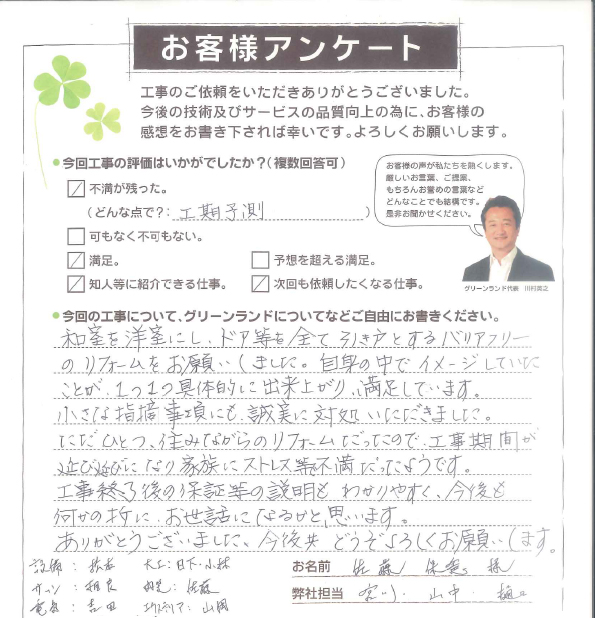 お客様アンケート
工事のご依頼をいただきありがとうございました。
今後の技術及びサービスの品質向上の為に、お客様の
感想をお書き下されば幸いです。よろしくお願いします。
●今回工事の評価はいかがでしたか?(複数回答可)
不満が残った。
(どんな点で?: 工期予測 )
可もなく不可もない。
満足。
予想を超える満足。
知人等に紹介できる仕事。
次回も依頼したくなる仕事。
お客様の声が私たちを熱くします。
厳しいお言葉、ご提案、
もちろんお誉めの言葉など
どんなことでも結構です。
是非お聞かせください。
グリーンランド代表 川村英之
●今回の工事について、グリーンランドについてなどご自由にお書きください。
和室を洋室にし、ドア等を全て引き戸とするバリアフリー
のリフォームをお願いしました。自身の中でイメージしていた
ことが、1つ1つ具体的に出来上がり、満足しています。
小さな指摘事項にも、誠実に対処いただきました。
ただひとつ、住みながらのリフォームだったので、工事期間が
延び延びになり家族にストレス等不満だったようです。
工事終了後の保証等の説明もわかりやすく、今後も
何かの折に、お世話になるかと思います。
ありがとうございました。今後共どうぞよろしくお願いします。
設備: 大工:日下・小林
お名前 佐藤 様
サッシ: 相良 佐藤
弊社担当 山中
電気: 吉田 エクステリア: 山岡